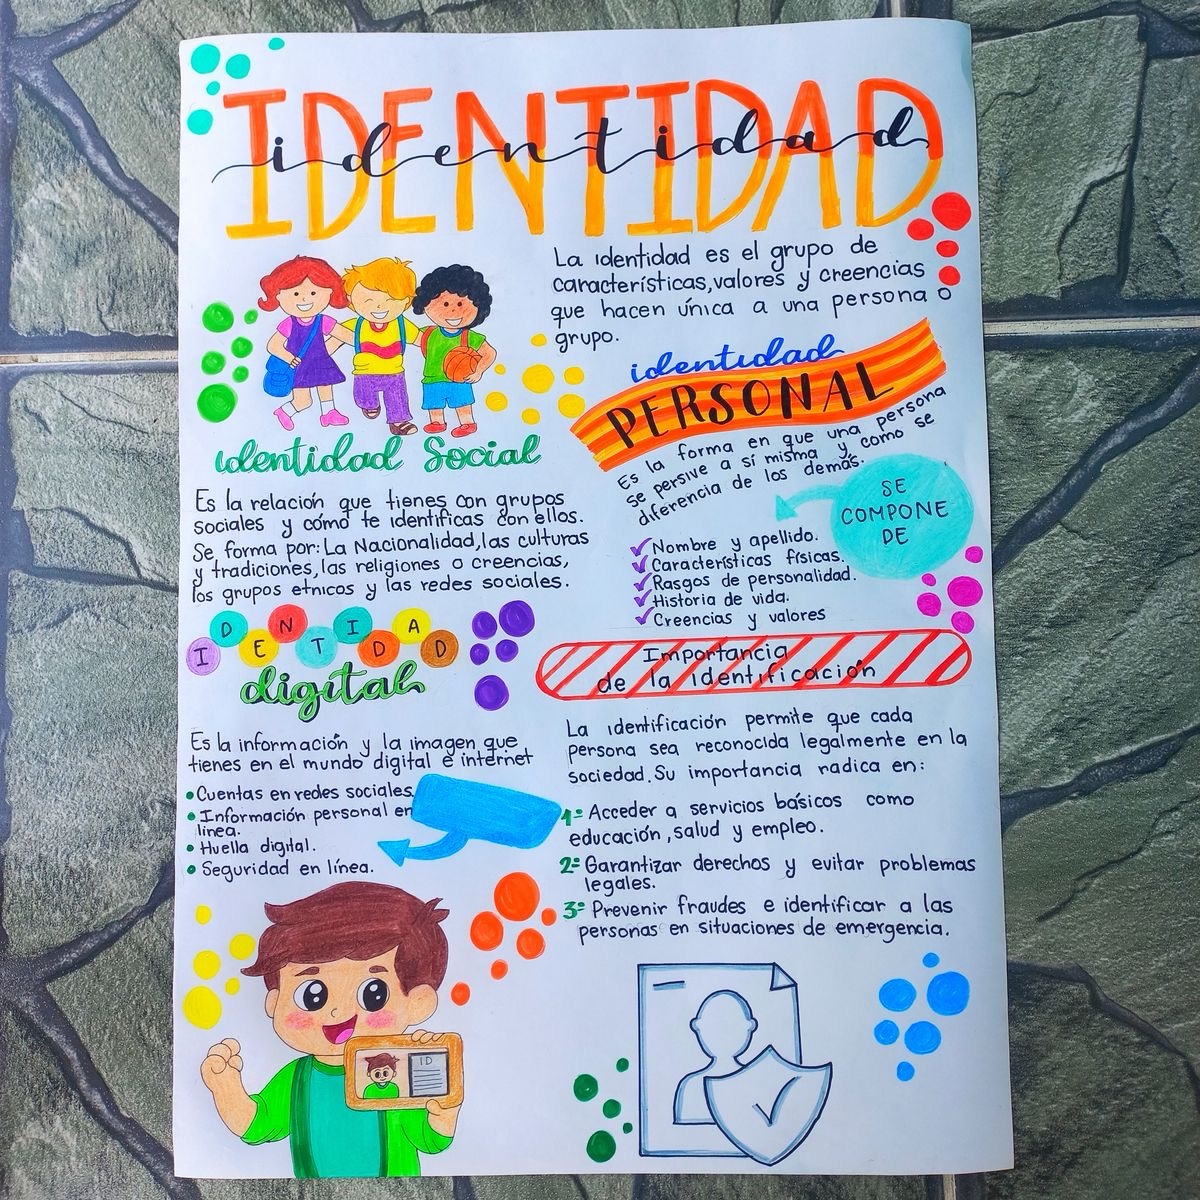 IDENTIDAD
identidad
La identidad es el grupo de
características, valores y creencias
que hacen única a una persona o
grupo.
identidad
PERSONAL
Es la forma en que una persona
se persive a sí misma y como se
diferencia de los demás.
SE
COMPONE
DE
Nombre y apellido.
Características físicas.
Rasgos de personalidad.
Historia de vida.
Creencias y valores
identidad Social
Es la relación que tienes con grupos
sociales y cómo te identificas con ellos.
Se forma por: La Nacionalidad, las culturas
y tradiciones, las religiones o creencias,
los grupos etnicos y las redes sociales.
IDENTIDAD
digital
Es la información y la imagen que
tienes en el mundo digital e internet
• Cuentas en redes sociales.
• Información personal en
linea.
• Huella digital.
• Seguridad en línea.
Importancia
de la identificación
La identificación permite que cada
persona sea reconocida legalmente en la
sociedad. Su importancia radica en:
1º Acceder a servicios básicos como
educación, salud y empleo.
2º Garantizar derechos y evitar problemas
legales.
3º Prevenir fraudes e identificar a las
personas en situaciones de emergencia.
ID